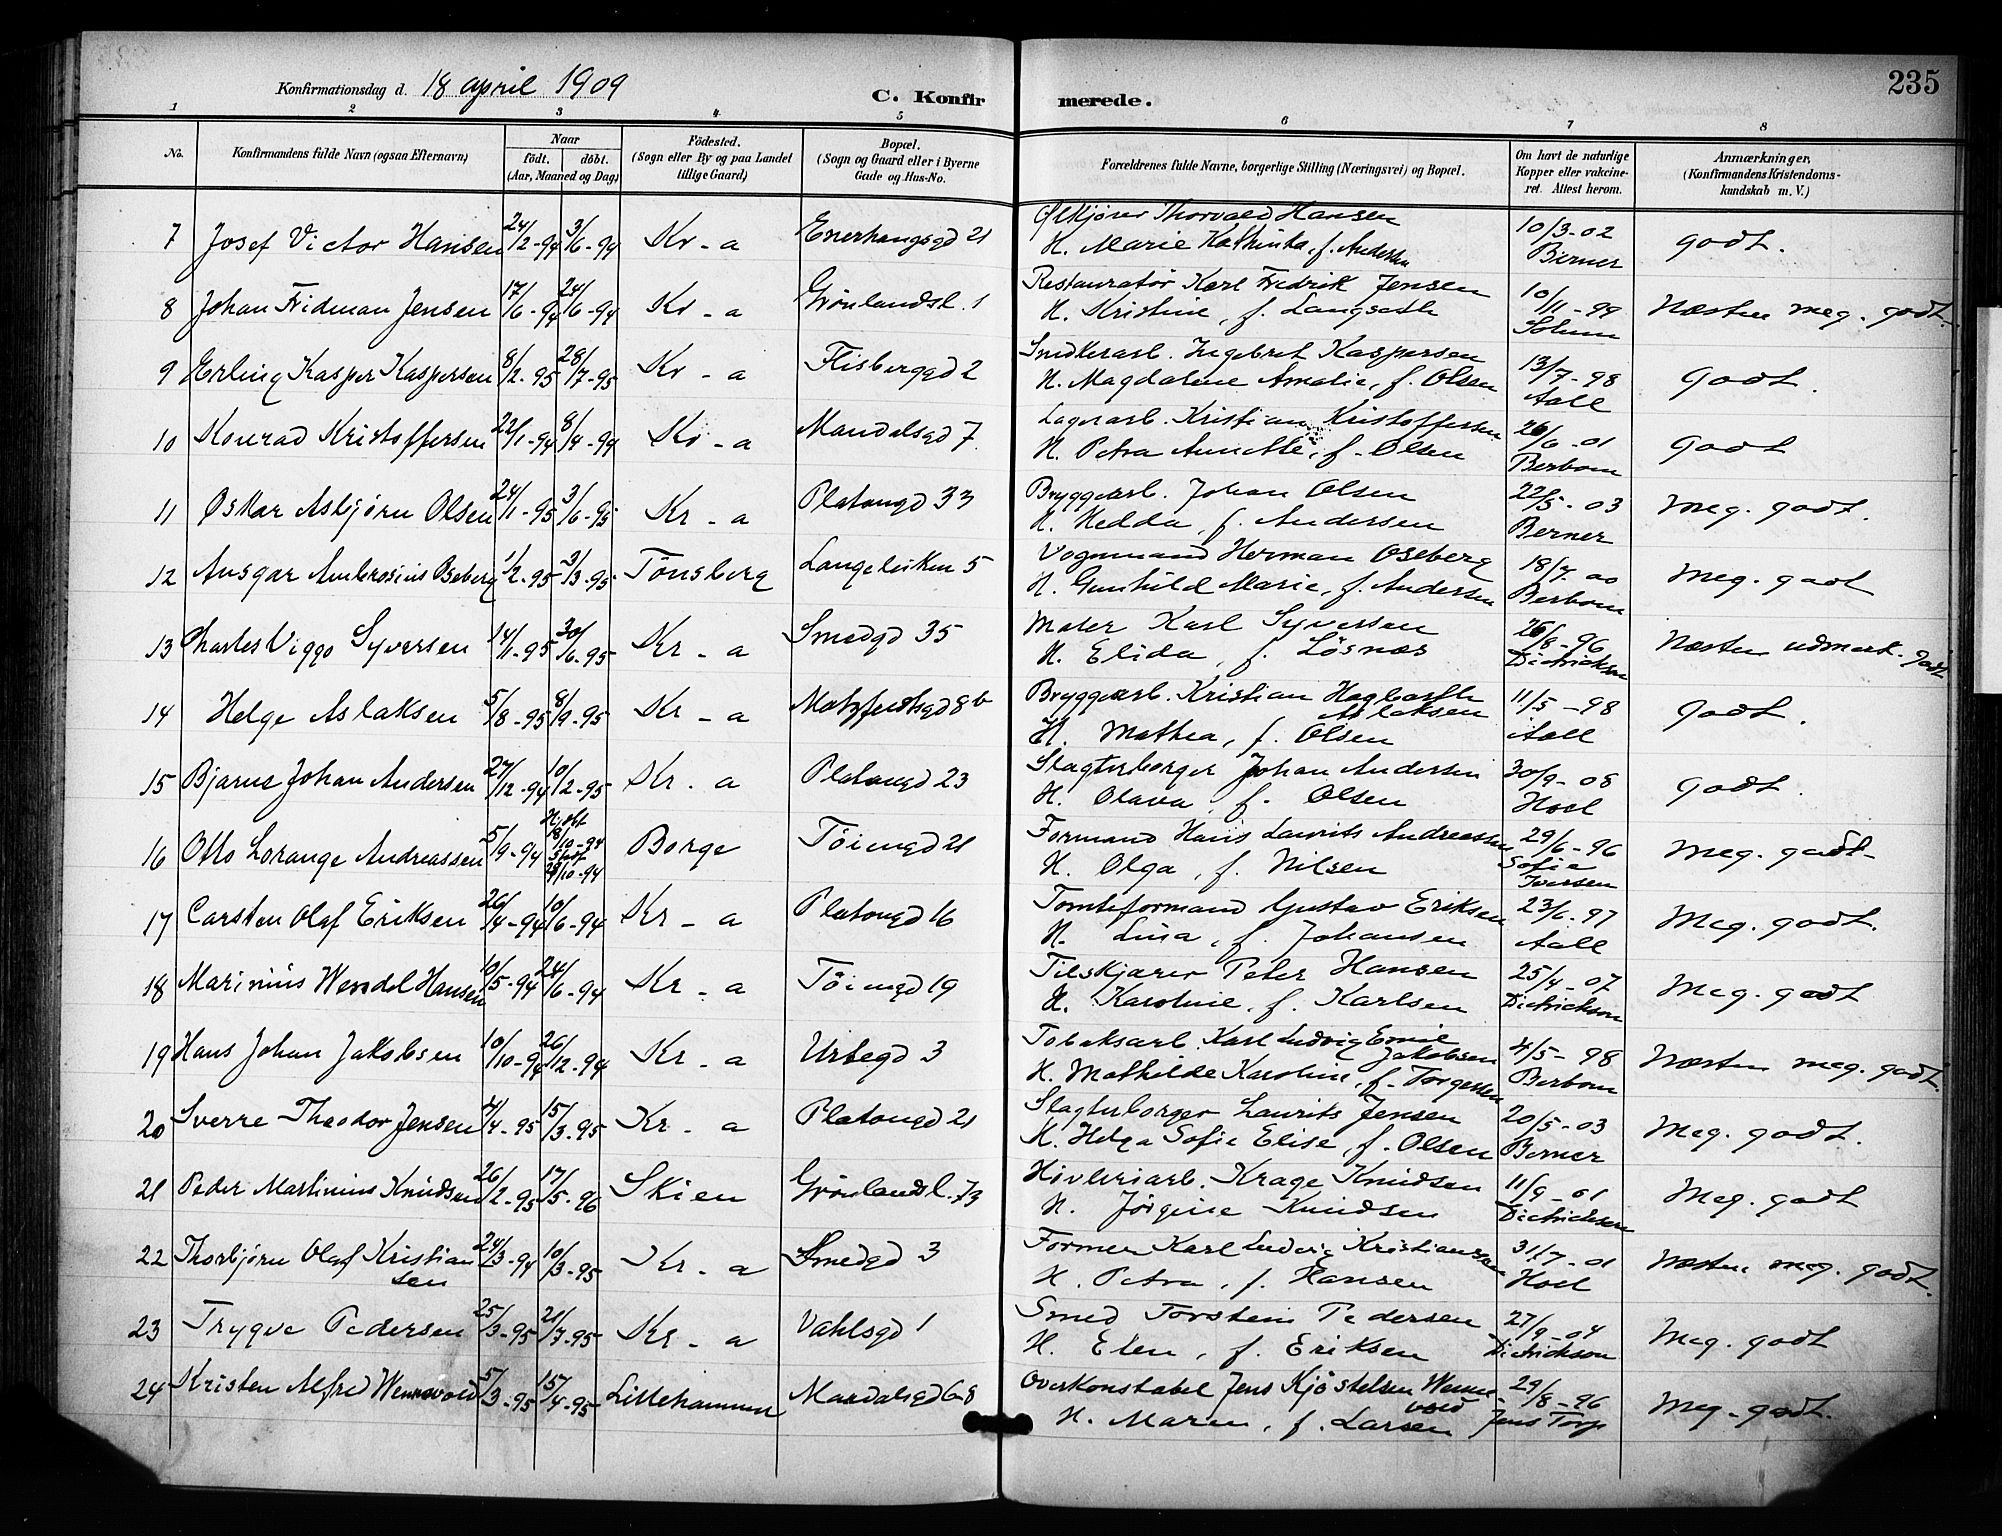 235
Konfirmationsdag d. 18 april 1909
C. Konfirmerede.
1 2 3 4 5 6 7 8
No. Konfirmandens fulde Navn (ogsaa Efternavn) Naar födt. döbt. (Aar, Maaned og Dag) Födested. (Sogn eller By og paa Landet tillige Gaard) Bopæl. (Sogn og Gaard eller i Byerne Gade og Hus-No. Forældrenes fulde Navne, borgerlige Stilling (Næringsvei) og Bopæl. Om havt de naturlige Kopper eller vakcineret. Attest herom. Anmærkninger, (Konfirmandens Kristendomskundskab m. V.)
7 Josef Victor Hansen 24/2-94 3/6-94 Kr-a Enerhaugsgd 21 Ølkjører Thorvald Hansen 10/3-02 godt.
H. Marie Kathinka, f. Andersen Berner
8 Johan Fridman Jensen 17/6-94 24/6-94 Kr-a Grønlandsl. 1 Restauratør Karl Fredrik Jensen 10/11-99 Næsten meg. godt.
H. Kristine, f. Langseth Solum
9 Erling Kasper Kaspersen 8/2-95 28/7-95 Kr-a Flisberggd 2 Snedkerarb. Ingebret Kaspersen 13/7-98 Godt.
H. Magdalene Amalie, f. Olsen Aall
10 Konrad Kristoffersen 22/1-94 8/4-94 Kr-a Mandalsgd 7. Lagerarb. Kristian Kristoffersen 26/6-01 Godt
H. Petra Annette, f. Olsen Berbom
11 Oskar Asbjørn Olsen 24/1-95 3/6-95 Kr-a Platougd 33 Bryggearb. Johan Olsen 22/5-03 Meg. godt.
H. Hedda, f. Andersen Berner
12 Ansgar Ambrosius Oseberg 1/2-95 3/3-95 Tönsberg Langeleiken 5 Vognmand Herman Oseberg 18/7.00 Meg. godt
H. Gunhild Marie, f. Andersen Berbom
13 Charles Viggo Syversen 14/1-95 30/6-95 Kr-a Smedgd 35 Maler Karl Syversen 26/8-96 Næsten udmerk. godt
H. Elida, f. Løsnæs Dietrichson
14 Helge Aslaksen 5/8-95 8/9-95 Kr-a 8 b Bryggearb. Kristian Hagbarth Aslaksen 11/5-98 Godt.
H. Mathea, f. Olsen Aall
15 Bjarne Johan Andersen 27/12-94 10/2-95 Kr.a Platougd 23 Slagterborger Johan Andersen 30/9-08 Godt.
H. Olava, f. Olsen Hoel
16 Otto Lorange Andreassen 5/9-94 Hj.døbt 8/10-94 Borge Töiengd 21 Formand Hans Laurits Andreassen 29/6-96 Meg. godt-
H. Olga, f. Nilsen Sofie Iversen
17 Carsten Olaf Eriksen 26/4-94 10/6-94 Kr-a Platougd 16 Tomteformand Gustav Eriksen 23/6-97 Meg. godt.
H. Lina, f. Johansen Aall
18 Marinius Wendel Hansen 10/5-94 24/6-94 Kr-a Töiengd 19 Tilskjærer Peter Hansen 25/4-07 Meg. godt
H. Karoline, f. Karlsen Dietrichson
19 Hans Johan Jakobsen 10/10-94 26/12-94 Kr-a Urtegd 3 Tobaksarb. Karl Ludvig Emil Jakobsen 4/5-98 Næsten meg. godt.
H. Mathilde Karoline, f. Torgersen Berbom
20 Sverre Theodor Jensen 15/3.95 Kr-a Platougd 21 Slagterborger Laurits Jensen 20/5-03 Meg. godt.
H. Helga Sofie Elise, f. Olsen Berner
21 Peder Martinius Knudsen 26/2-95 17/5-96 Skien Grønlandsl. 73 Høvleriarb. Krage Knudsen 11/9-01 Meg. godt
H. Jørgine Knudsen Dietrichson
22 Thorbjörn Olaf Kristiansen 24/3-94 10/3-95 Kr-a Smedgd 3 Former Karl Ludvig Kristiansen 31/7-01 Næsten meg. godt.
H. Petra, f. Hansen Hoel
23 Trygve Pedersen 25/3-95 21/7-95 Kr-a Vahlsgd 1 Smed Torstein Pedersen 27/9-04 Meg. godt
H. Elen, f. Eriksen Dietrichson
24 Kristen Alfred Wennevold 5/3-95 15/4-95 Lillehammer Mandalsgd 6-8 Overkonstabel Jens Kjøstelsen Wennevold 29/8-96 Meg-godt.
H. Maren, f. Larsen Jens Torp